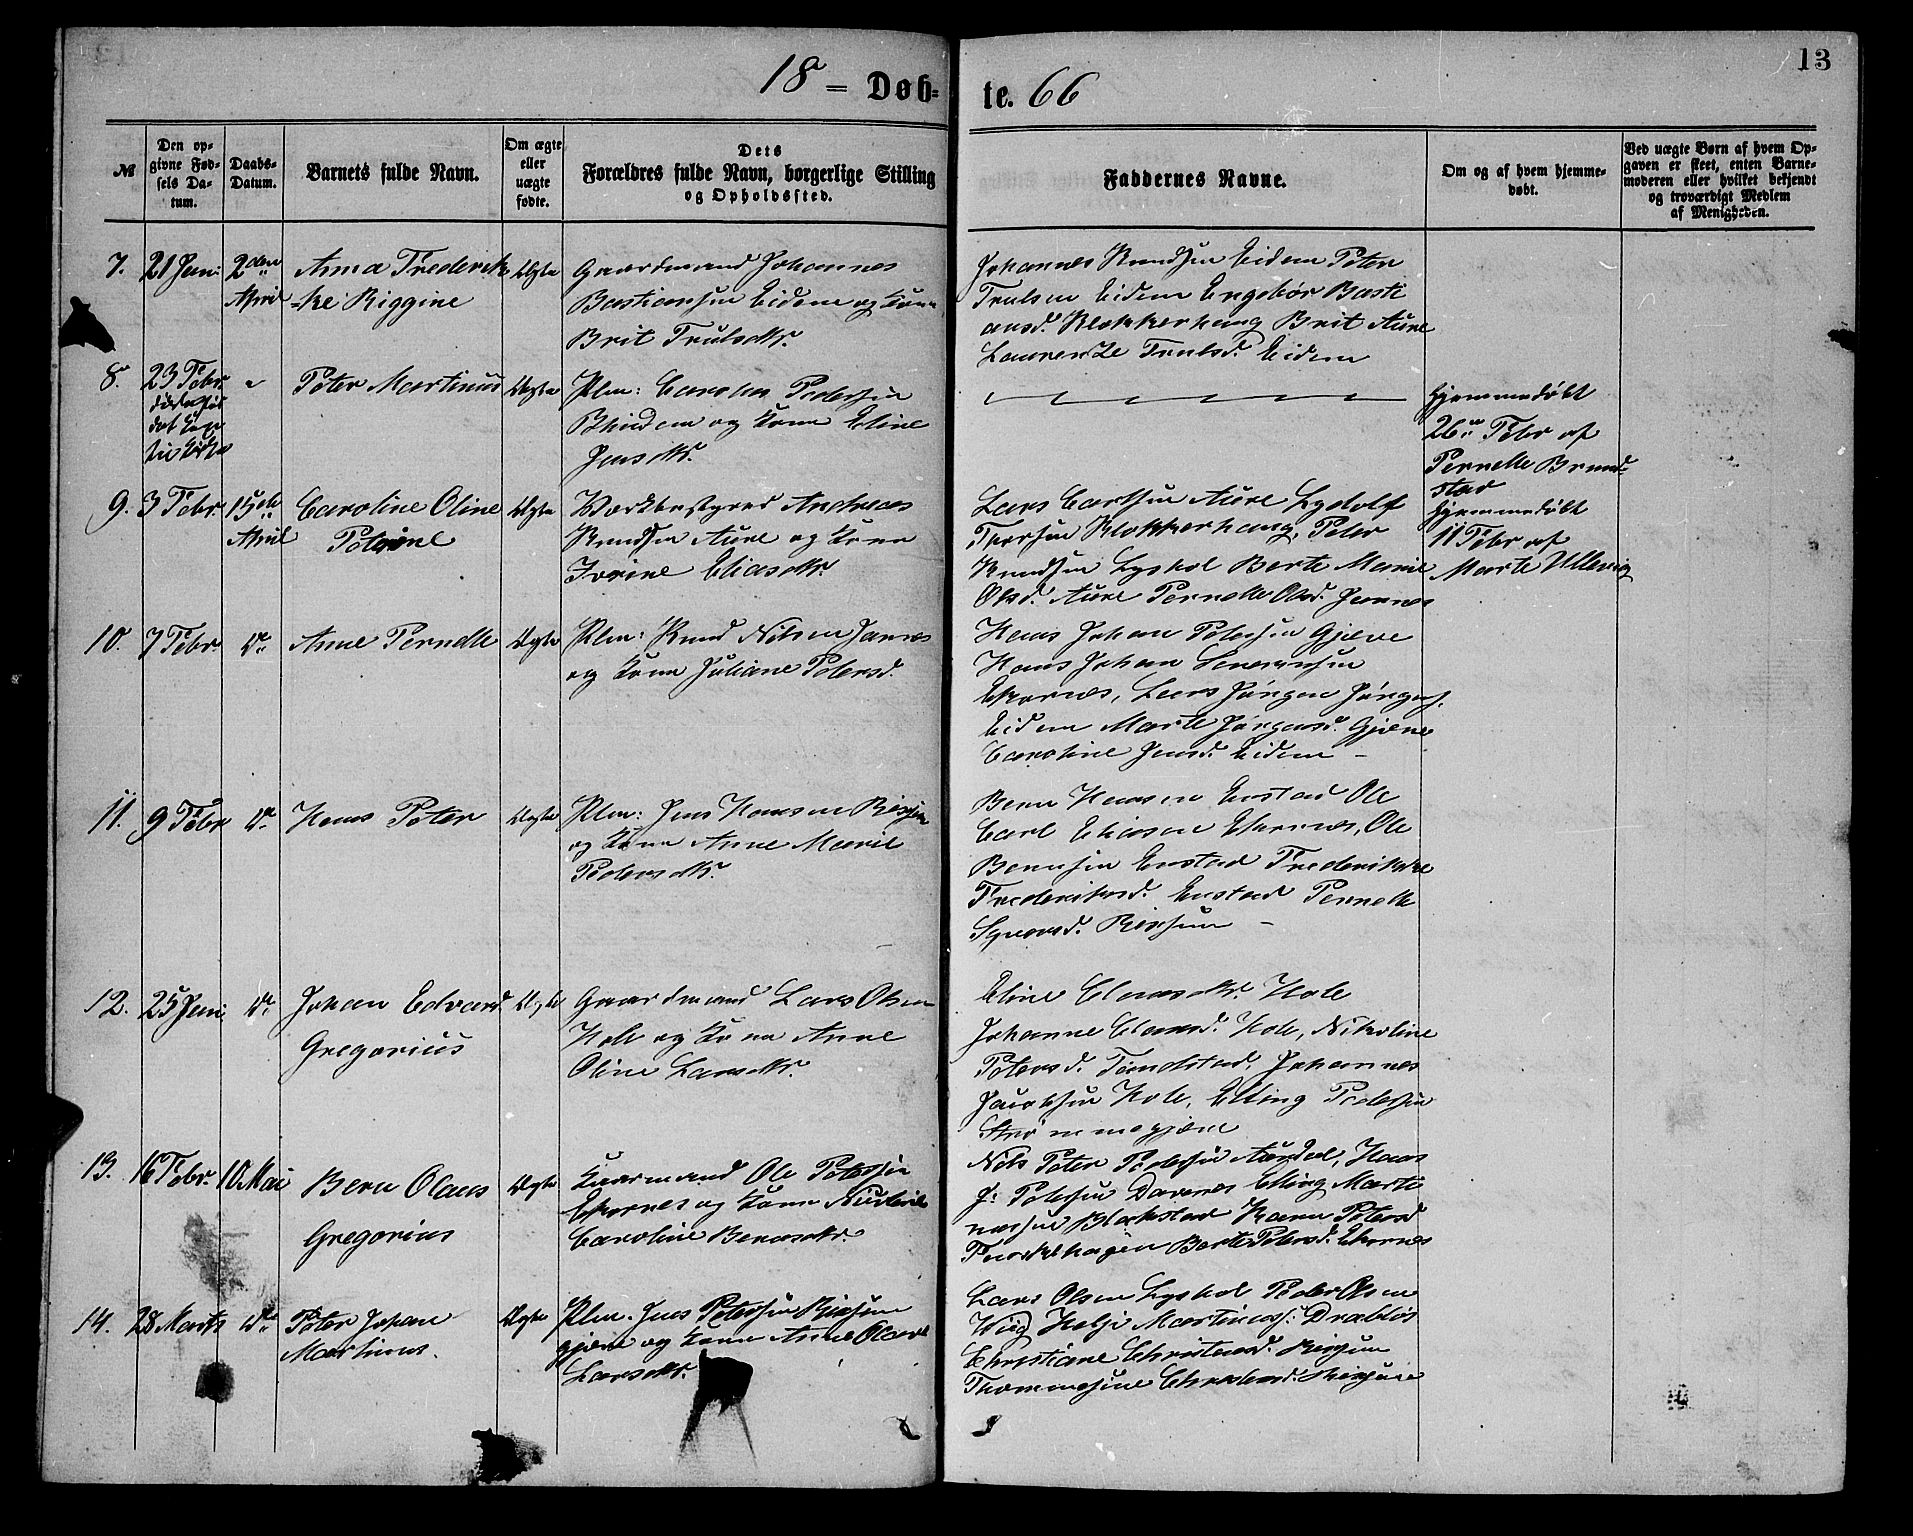 18 = Døb-
te. 66
13
№
Den op-
givne Fød-
sels Da-
tum.
Daabs-
Datum.
Barnets fulde Navn.
Om ægte
eller
uægte
fødte.
Dets
Forældres fulde Navn, borgerlige Stilling
og Opholdssted.
Faddernes Navne.
Om og af hvem hjemme-
døbt.
Ved uægte Børn af hvem Op-
gaven er skeet, enten Barne-
moderen eller hvilket bekjendt
og troværdigt Medlem
af Menigheden.
7.
21 Jan:
2den
April
Anna Frederik-
-ke Riggine
Ægte
Gaardmand Johannes
Bastiansen Eidem og Kone
Brit Trulsdtr.
Johannes Knudsen Eidem Peter
Trulsen Eidem Engebør Basti
ansd. Klokkerhaug Brit Aure
Laurentze Trulsd. Eidem
8.
23 Febr.
Peter Martinus
Ægte
Plm: Carolus Pedersen
og Kone Eline
Jensdtr.
Hjemmedøbt
26de Febr af
Pernelle Brund-
stad
9.
3 Febr.
15de
April
Caroline Oline
Petrine
Ægte
Andreas
Knudsen Aure og Kone
Iverine Eliasdtr.
Lars Carlsen Aure Lydolf
Thorsen Klokkerhaug, Peter
Knudsen Lyshol Berte Marie
Olsd. Aure Pernelle Olsd. Jarnes
Hjemmedøbt
11 Febr af
Marte Ullavig
10.
7 Febr.
Do
Anne Pernelle
Ægte
Plm: Knud Nilsen Jarnes
og Kone Juliane Petersd.
Hans Johan Petersen Gjære
Hans Johan Severinsen
Ekornes, Lars Jørgen Jørgens.
Eidem Marte Jørgensd. Gjære
Caroline Jensd. Eidem -
11.
9 Febr
Do
Hans Peter
Ægte
Plm: Jens Hansen
og Kone Anne Marie
Pedersdtr.
Bern Hansen Enstad Ole
Carl Eliasen Ekornes, Ole
Bernsen Enstad Frederikke
Frederiksd. Enstad Pernelle
Syversd. -
12.
25 Jan:
Do
Johan Edvard
Gregorius
Ægte
Gaardmand Lars Olsen
Hole og Kone Anne
Oline Larsdtr.
Eline Clausdtr. Hole
Johanne Clausd. Hole, Nikoline
Petersd. Tandstad, Johannes
Jacobsen Hole, Elling Pedersen
Strømmegjære
13.
16 Febr.
10 Mai
Bern Olaus
Gregorius
Ægte
Ole Petersen
Ekornes og Kone
Caroline Berntsdtr.
Nils Peter Pedersen Aurdal, Hans
J: Petersen Ekornes Elling Marti
nussen Blakstad Karen Petersd
Berte Petersd. Ekornes
14.
28 Marts
Do
Peter Johan
Martinus.
Ægte
Plm. Jens Petersen
gjære og Kone Anne Olave
Larsdtr.
Lars Olsen Lyshol Peder Olsen
Wiig Helje Martinuss: Drabløs
Christiane Christensd.
Thomasine